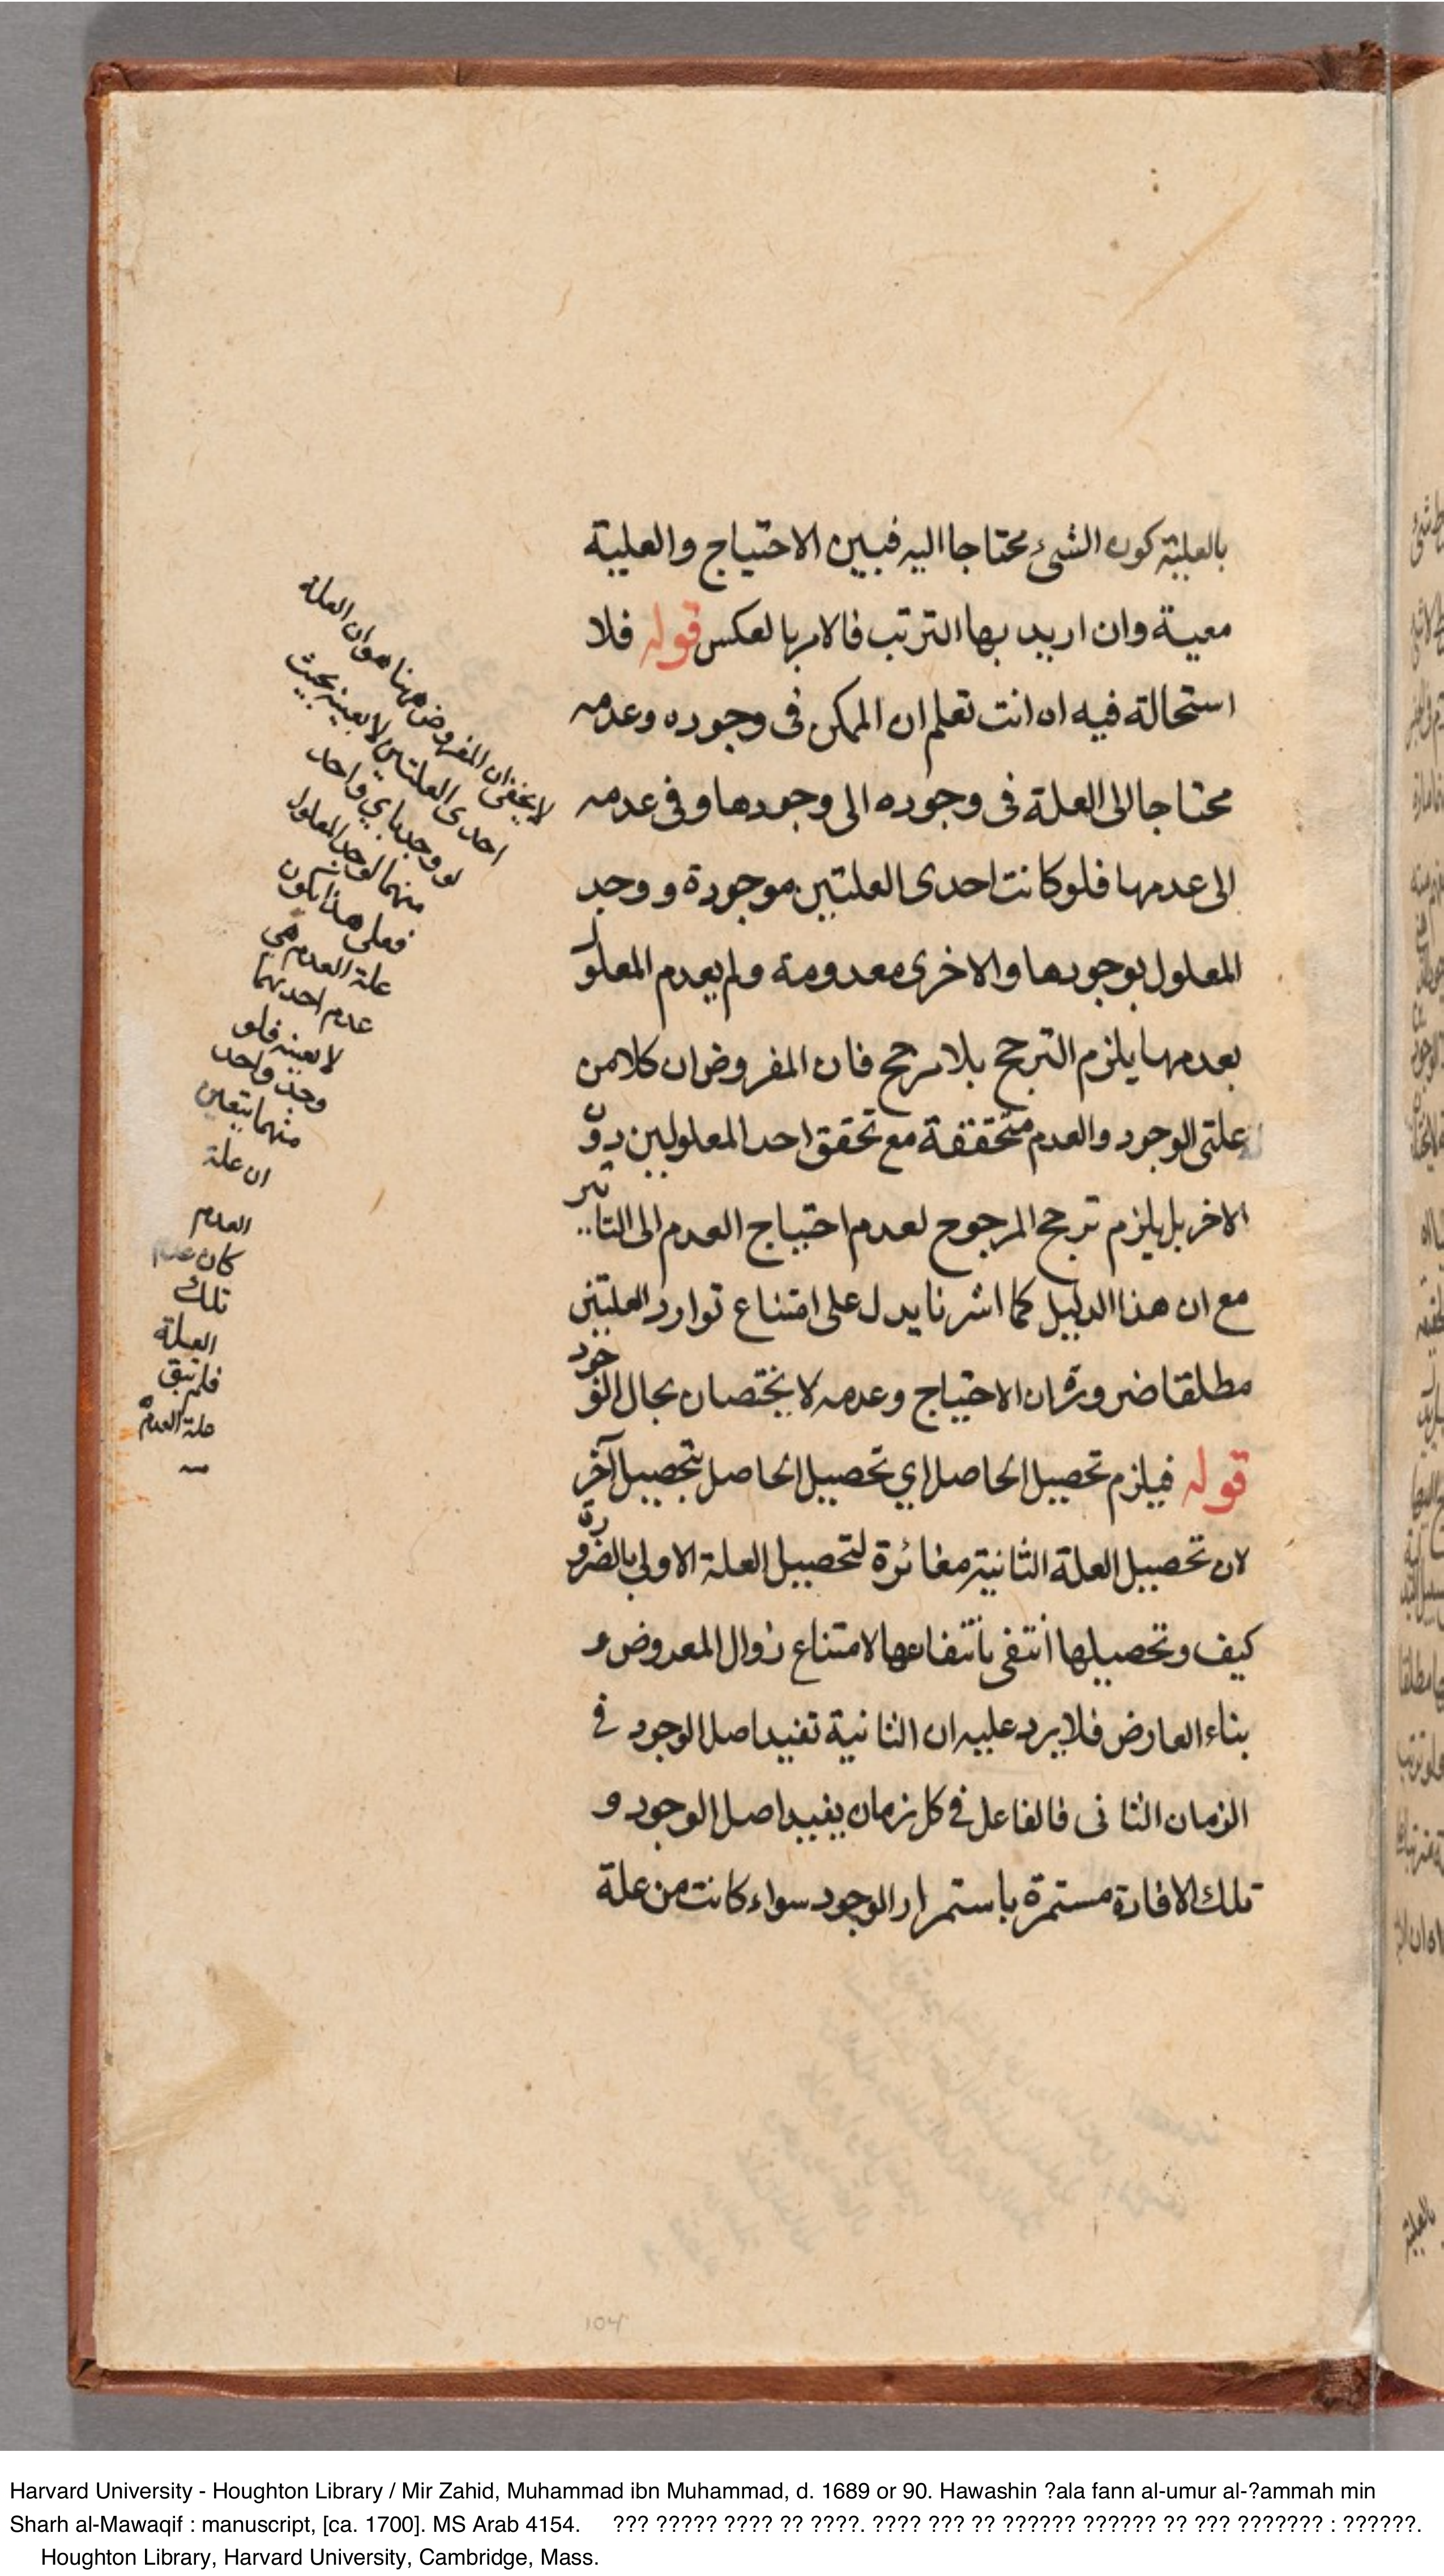 بالعلية كون الشيء محتاجا اليه فبين الاحتياج والعلية
معية وان اريد بها الترتب فالامر بالعكس قوله فلا
استحالة فيه اه انت تعلم ان الممكن فى وجوده وعدمه
محتاجا الى العلة فى وجوده الى وجودها وفى عدمه
الى عدمها فلو كانت احدى العلتين موجودة ووجد
المعلول بوجودها والاخرى معدومة ولم يعدم المعلول
بعدمها يلزم الترجح بلا مرجح فان المفروض ان كلا من
علتى الوجود والعدم متحققة مع تحقق احد المعلولين دون
الاخر بل يلزم ترجح المرجوح لعدم احتياج العدم الى التاثير
مع ان هذا الدليل كما اشرنا يدل على امتناع توارد العلتين
مطلقا ضرورة ان الاحتياج وعدمه لا يختصان بحال
قوله فيلزم تحصيل الحاصل اي تحصيل الحاصل بتحصيل آخر
لان تحصيل العلة الثانية مغائرة لتحصيل العلة الاولى بالضرورة
كيف وتحصيلها انتفى بانتفاءها لامتناع زوال المعروض و
بناء العارض فلا يرد عليه ان الثانية تفيد اصل الوجود في
الزمان الثانى فالفاعل في كل زمان يفيد اصل الوجود و
تلك الافادة مستمرة باستمرار الوجود سواء كانت من علة
لا يخفى ان المفروض ههنا هو ان العلة
احدى العلتين لا بعينه بحيث
لو وجد باي واحد
منهما لوجد المعلول
فعلى هذا يكون
علة العدم هي
عدم احديهما
لا بعينه فلو
وجد واحد
منهما يتعين
ان علة
العدم
كان عدم
تلك
العلة
فلم تبق
علة العدم
104
Harvard University - Houghton Library / Mir Zahid, Muhammad ibn Muhammad, d. 1689 or 90. Hawashin ?ala fann al-umur al-?ammah min
Sharh al-Mawaqif : manuscript, [ca. 1700]. MS Arab 4154. ??? ????? ???? ?? ????. ???? ??? ?? ?????? ?????? ?? ??? ??????? : ??????.
Houghton Library, Harvard University, Cambridge, Mass.